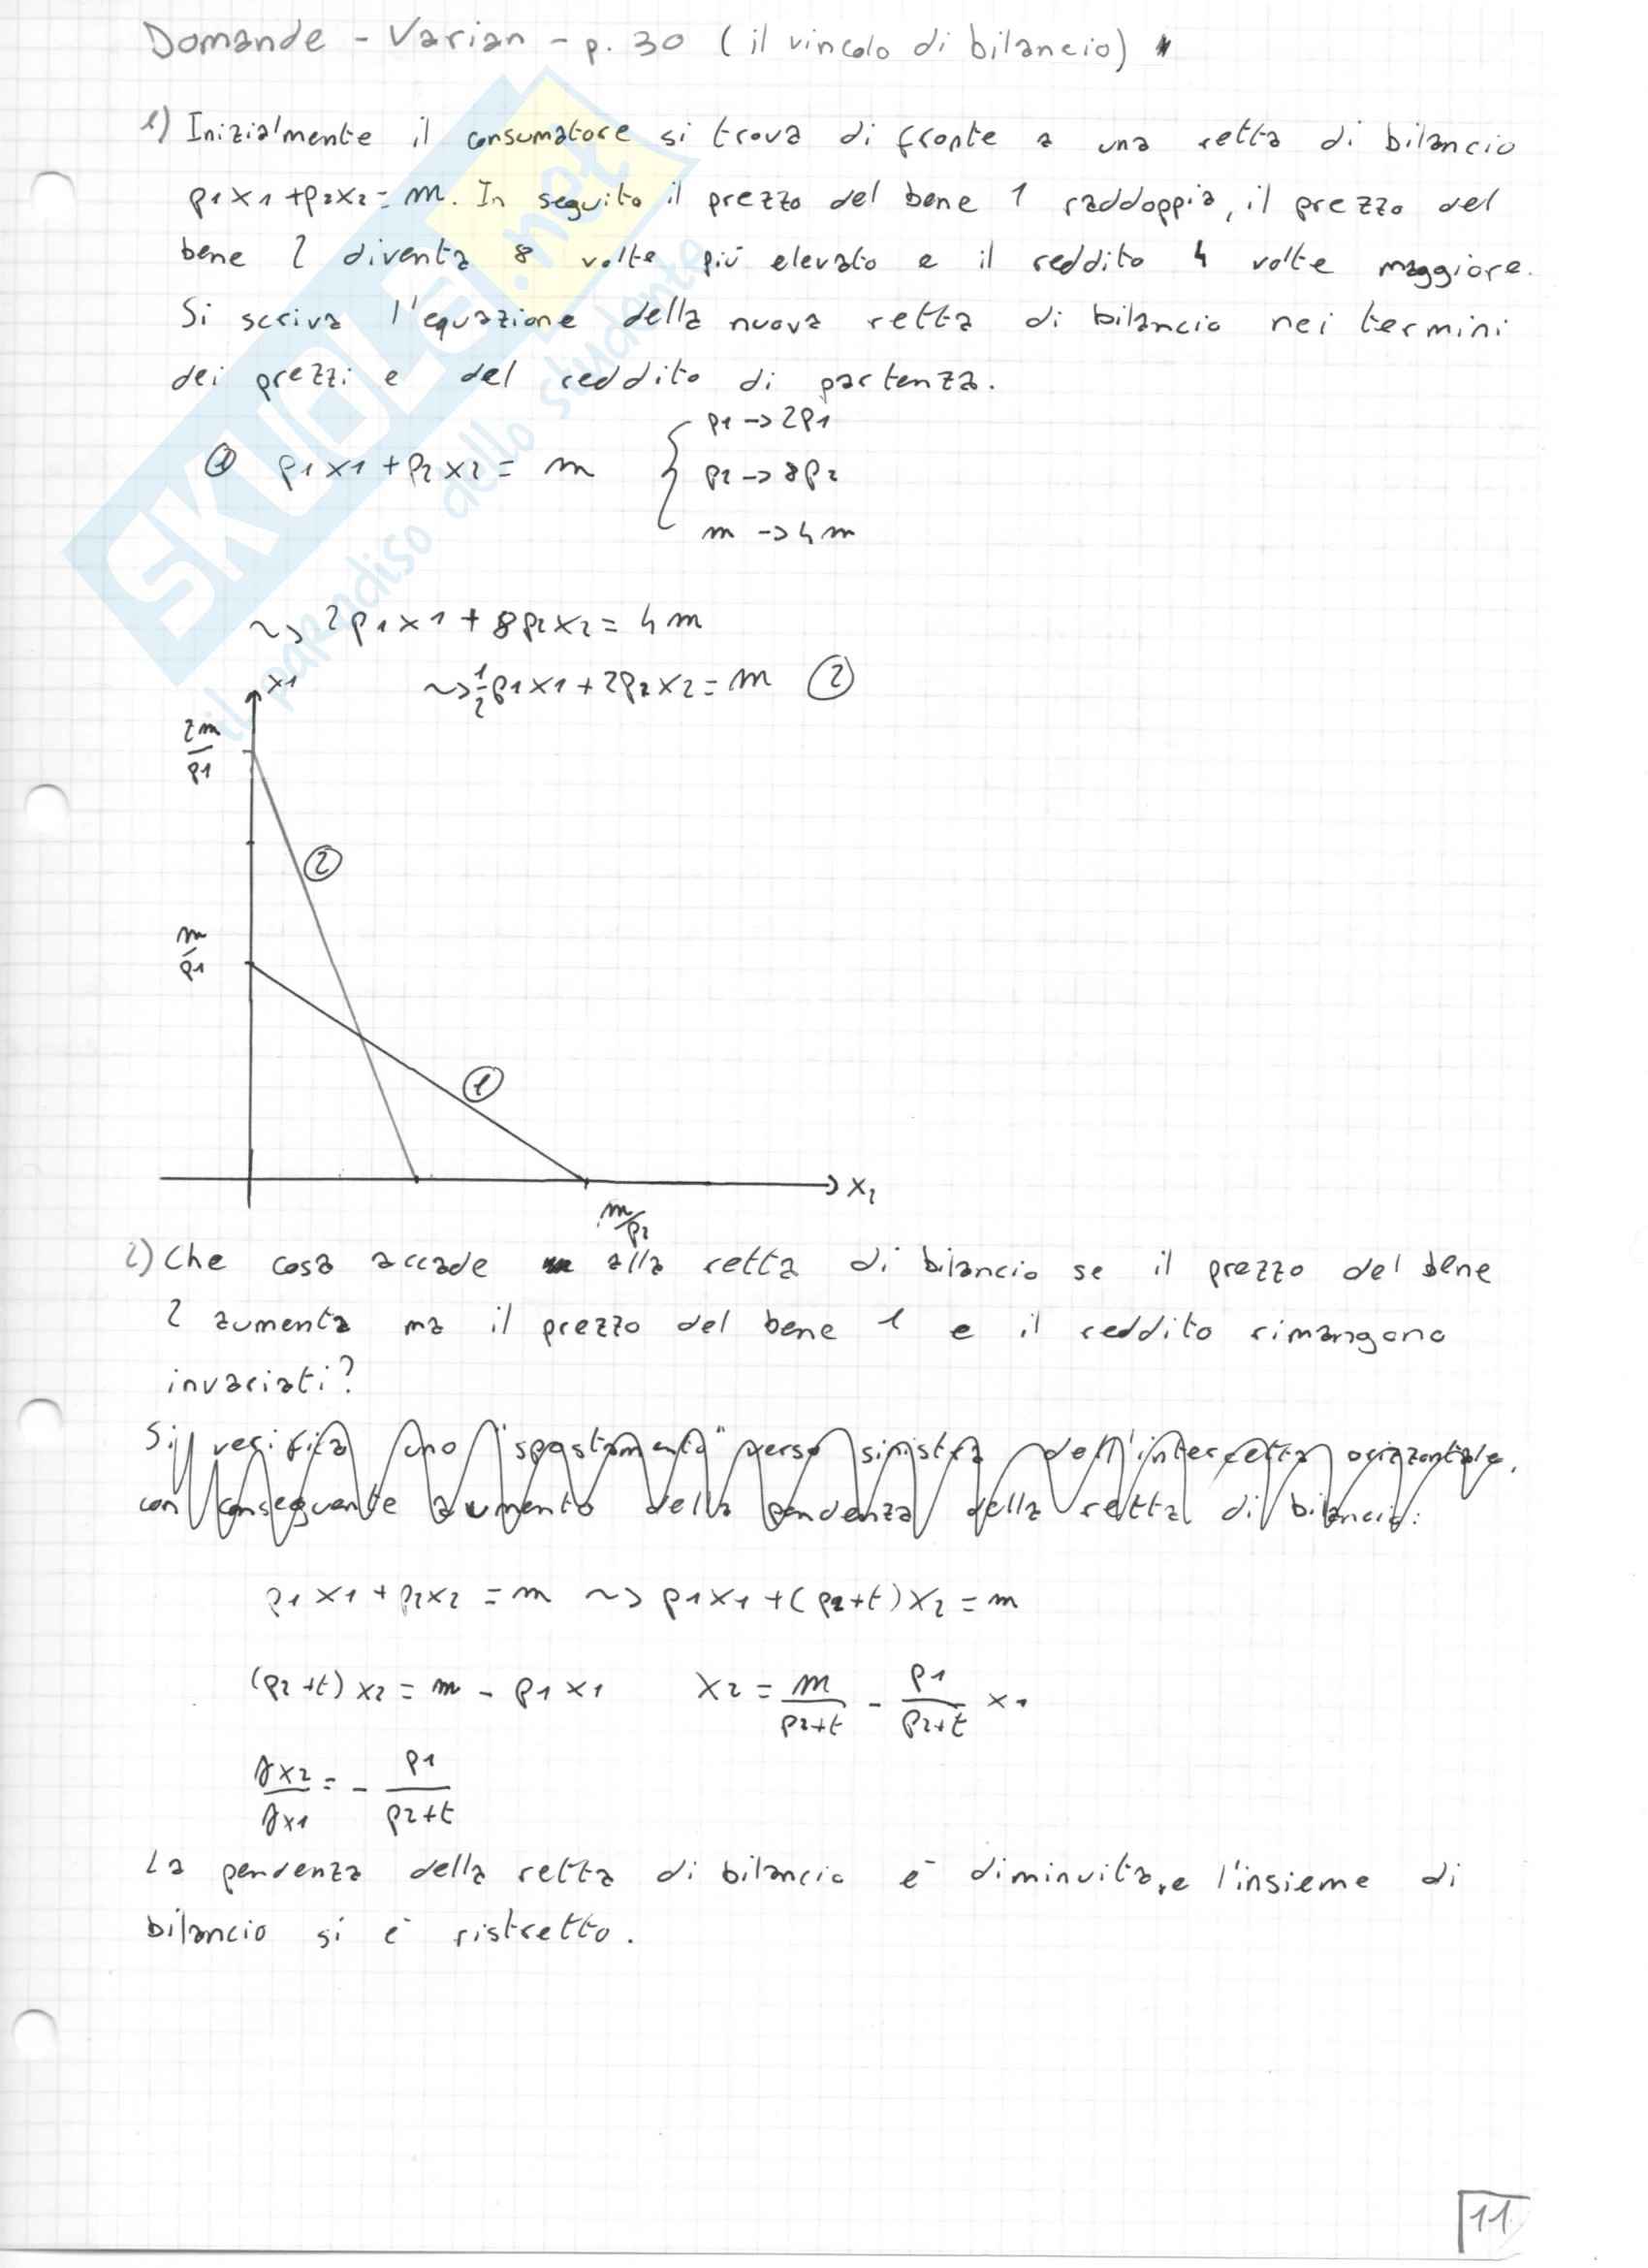 Domande - Varian - p. 30 (il vincolo di bilancio)
1) Inizialmente il consumatore si trova di fronte a una retta di bilancio
p1x1+p2x2=m. In seguito il prezzo del bene 1 raddoppia, il prezzo del
bene 2 diventa 8 volte più elevato e il reddito 4 volte maggiore.
Si scriva l'equazione della nuova retta di bilancio nei termini
dei prezzi e del reddito di partenza.
① p1x1+p2x2=m { p1->2p1
p2->8p2
m->4m
~> 2p1x1+8p2x2=4m
~> 1/2 p1x1+2p2x2=m ②
x1
2m/p1
②
m/p1
①
x2
m/p2
2) Che cosa accade alla retta di bilancio se il prezzo del bene
2 aumenta ma il prezzo del bene 1 e il reddito rimangono
invariati?
Si verifica uno "spostamento" verso sinistra dell'intercetta orizzontale,
con conseguente aumento della pendenza della retta di bilancio:
p1x1+p2x2=m ~> p1x1+(p2+t)x2=m
(p2+t)x2=m-p1x1 x2=m/(p2+t) - p1/(p2+t) x1
∂x2/∂x1=-p1/(p2+t)
La pendenza della retta di bilancio è diminuita, e l'insieme di
bilancio si è ristretto.
11
SKUOLA.net
il paradiso dello studente